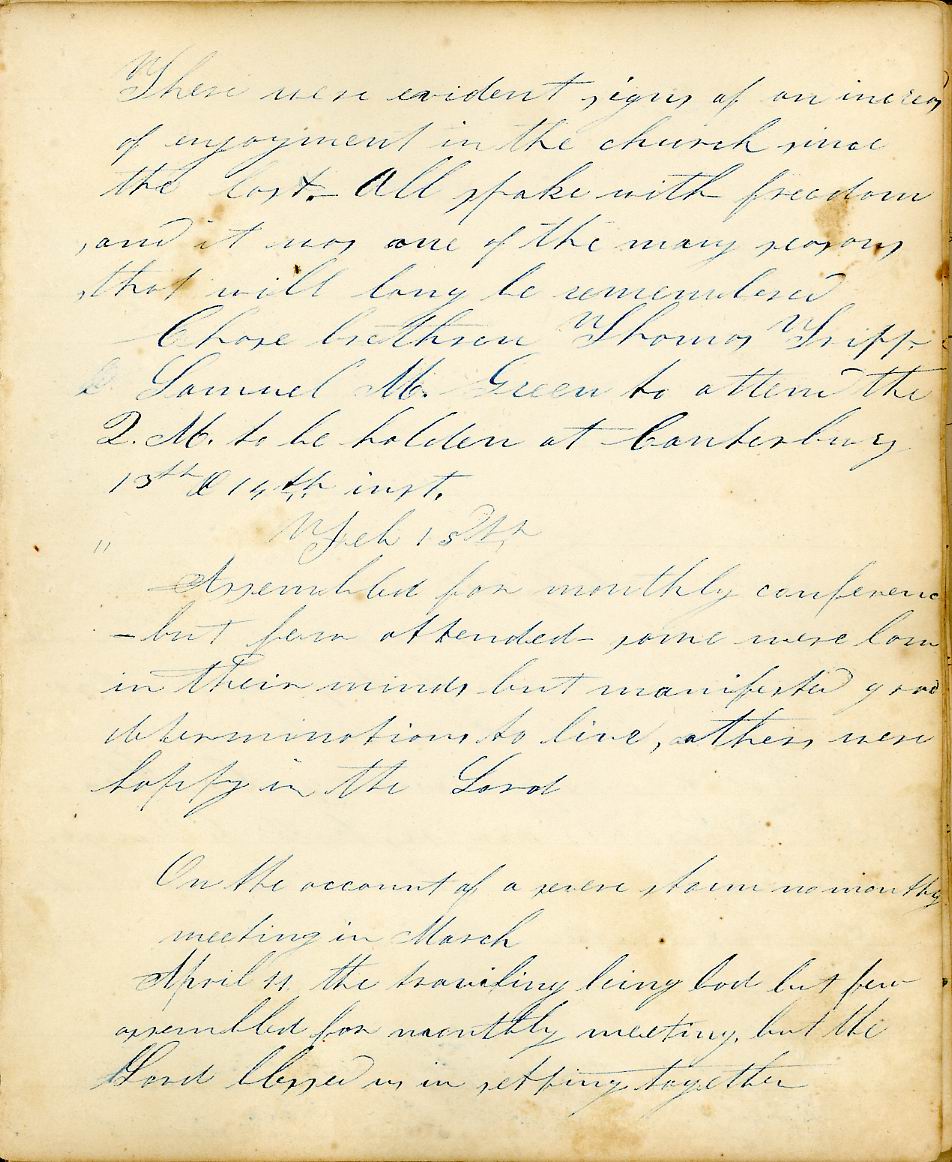 There were evident signs of an increas
of enjoyment in the church since
the last. All spake with freedom
and it was one of the many seasons
that will long be remembered
Chose brethren Thomas Tripp
& Samuel M. Green to attend the
Q. M. to be holden at Canterbury
13th & 14th inst.
" Feb 13th
Assembled for monthly conferenc
– but few attended – some were low
in their minds but manifested good
determinations to live, others were
happy in the Lord
On the account of a severe storm no monthly
meeting in March
April 11 the traviling being bad but few
assembled for monthly meeting, but the
Lord blessed us in together